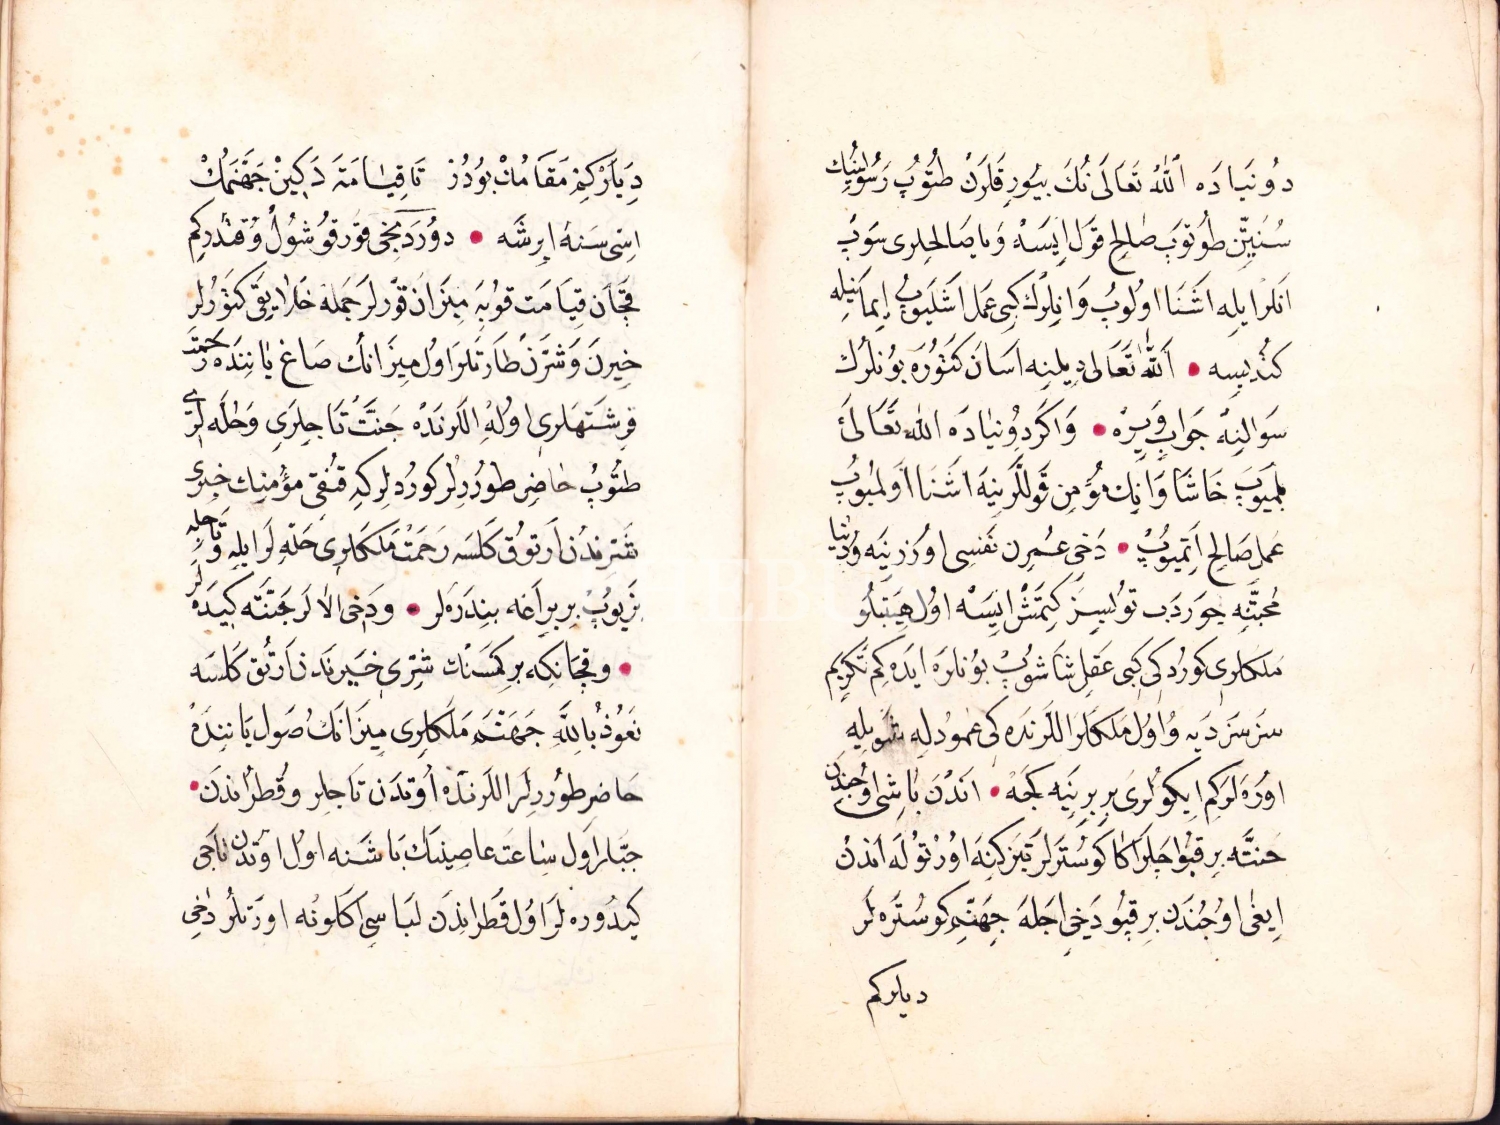 دُونيَادَه اللّٰهُ تَعَالَى نُكَ بيُورقَلَرِنْ طُتُوبُ رَسُولُنِيكْ
سُنَّتِنْ طُوتوُبَ صَالِح قوَل اِيسَهْ وَيَا صَالحلرى سَوُبْ
انَلرايلِه اَشَنَا اولُوبُ وَانلِرُكْ كِبِى عَمَل اَشلَيوُبْ اِيمَانيِلَه
كتْديسه • اَللّٰهُ تَعَالَى ديلنِه اسَانَ كتوُرَه بوُنلرُكْ
سَوالنِهْ جوَاب وَيرَهْ • وَاكَردوُنيَادَه اللّٰه تعَالَىٰ
بلميوُبَ حَاشَا وَانِكْ مُؤمِن قَوُللَرينَه اَشَنَا اوَلميوُبُ
عَمل صَالِح اِتميوُبْ • دَخى عُمرِن نَفسِى اوُزرِنيَه وُدُنيَا
مُحبتْنِه جوردَب توُبسِز كتمَشْ ايسَهْ اوُل هَيبَتلوُ
مَلكلرى كورُدكى كبى عَقلِ شاشوُبْ بوُنلرَه ايدَه كم تكْريم
سزسزدَيه وُاوُل مَلكلَر اللرنَدَه كى عموُدلِه شوَيلِه
اوُرَه لَركم ايكوُلَرى بِربرِنيَه كجَهْ • اندَنْ بَاشِى اوُجندَنْ
جنتَه بِر قپوُاچلَر اَكَا كوُستَرلَر تيزكِنَه اوُرْتوُلَه اندَنْ
ايغى اوُجُندَن بِر قپوُ دَخِى اچلهَ جهَنَّم كوُستَرَه لَر
ديلركم
دِيلَرْكِم مَقَامُكْ بوُدُرْ تَا قِيَامَتَه دَكينْ جَهَنَّمُكْ
اسِّى سَنَهْ اِيرشَه • دوُردُنجى قورقوُ شوُل وُقتْدركم
قچَان قِيَامَت قوُپَه ميزَان قوْرلَر جَملهَ خَلَايقى كتوُرلر
خيرنَ وَ شَرَّنْ طَارتَلرَ اوُل ميزَانكْ صَاغ يَانِندَه رَحمَتْ
فِرشتَهلَرى اوُلَه اللرنَدَه جَنَّتْ تَاجلرَى وَحُلَّه لَرى
طُتوُبْ حَاضِر طوُرُرلر كورُدلركه قنُغى مؤمنِيكْ خيرى
شَرّندُنْ اَرتوُق كَلسَه رَحمَتْ مَلكلَرى حُلَّه لَرايلهِ وَتَاجله
بَزيوُبْ بربُراغه بندَرَه لر • ودَخى الاَلَر جَنّتَه كيدَه لر
• وقچَانكه برِكمسَنُكْ شَرّى خَيرندَن اَرتُق كَلسَه
نَعُوذُ بِاللَّهِ جَهَنَّمَ مَلكلَرى ميزَانكُ صوُل يَاننِدَهْ
حَاضِر طوُررلَر اللَرنَدَه اُوتدَن تَاجلر وقُطرُاندَن •
جَبَّار اوَل سَاعَت عَاصِينكْ بَاشَنه اوُل اوُتدن تاَجى
كيدُورَه لَر اوُل قَطراندَن لبَاسى اَكَا لونُه اورَتلرْ دَخِى